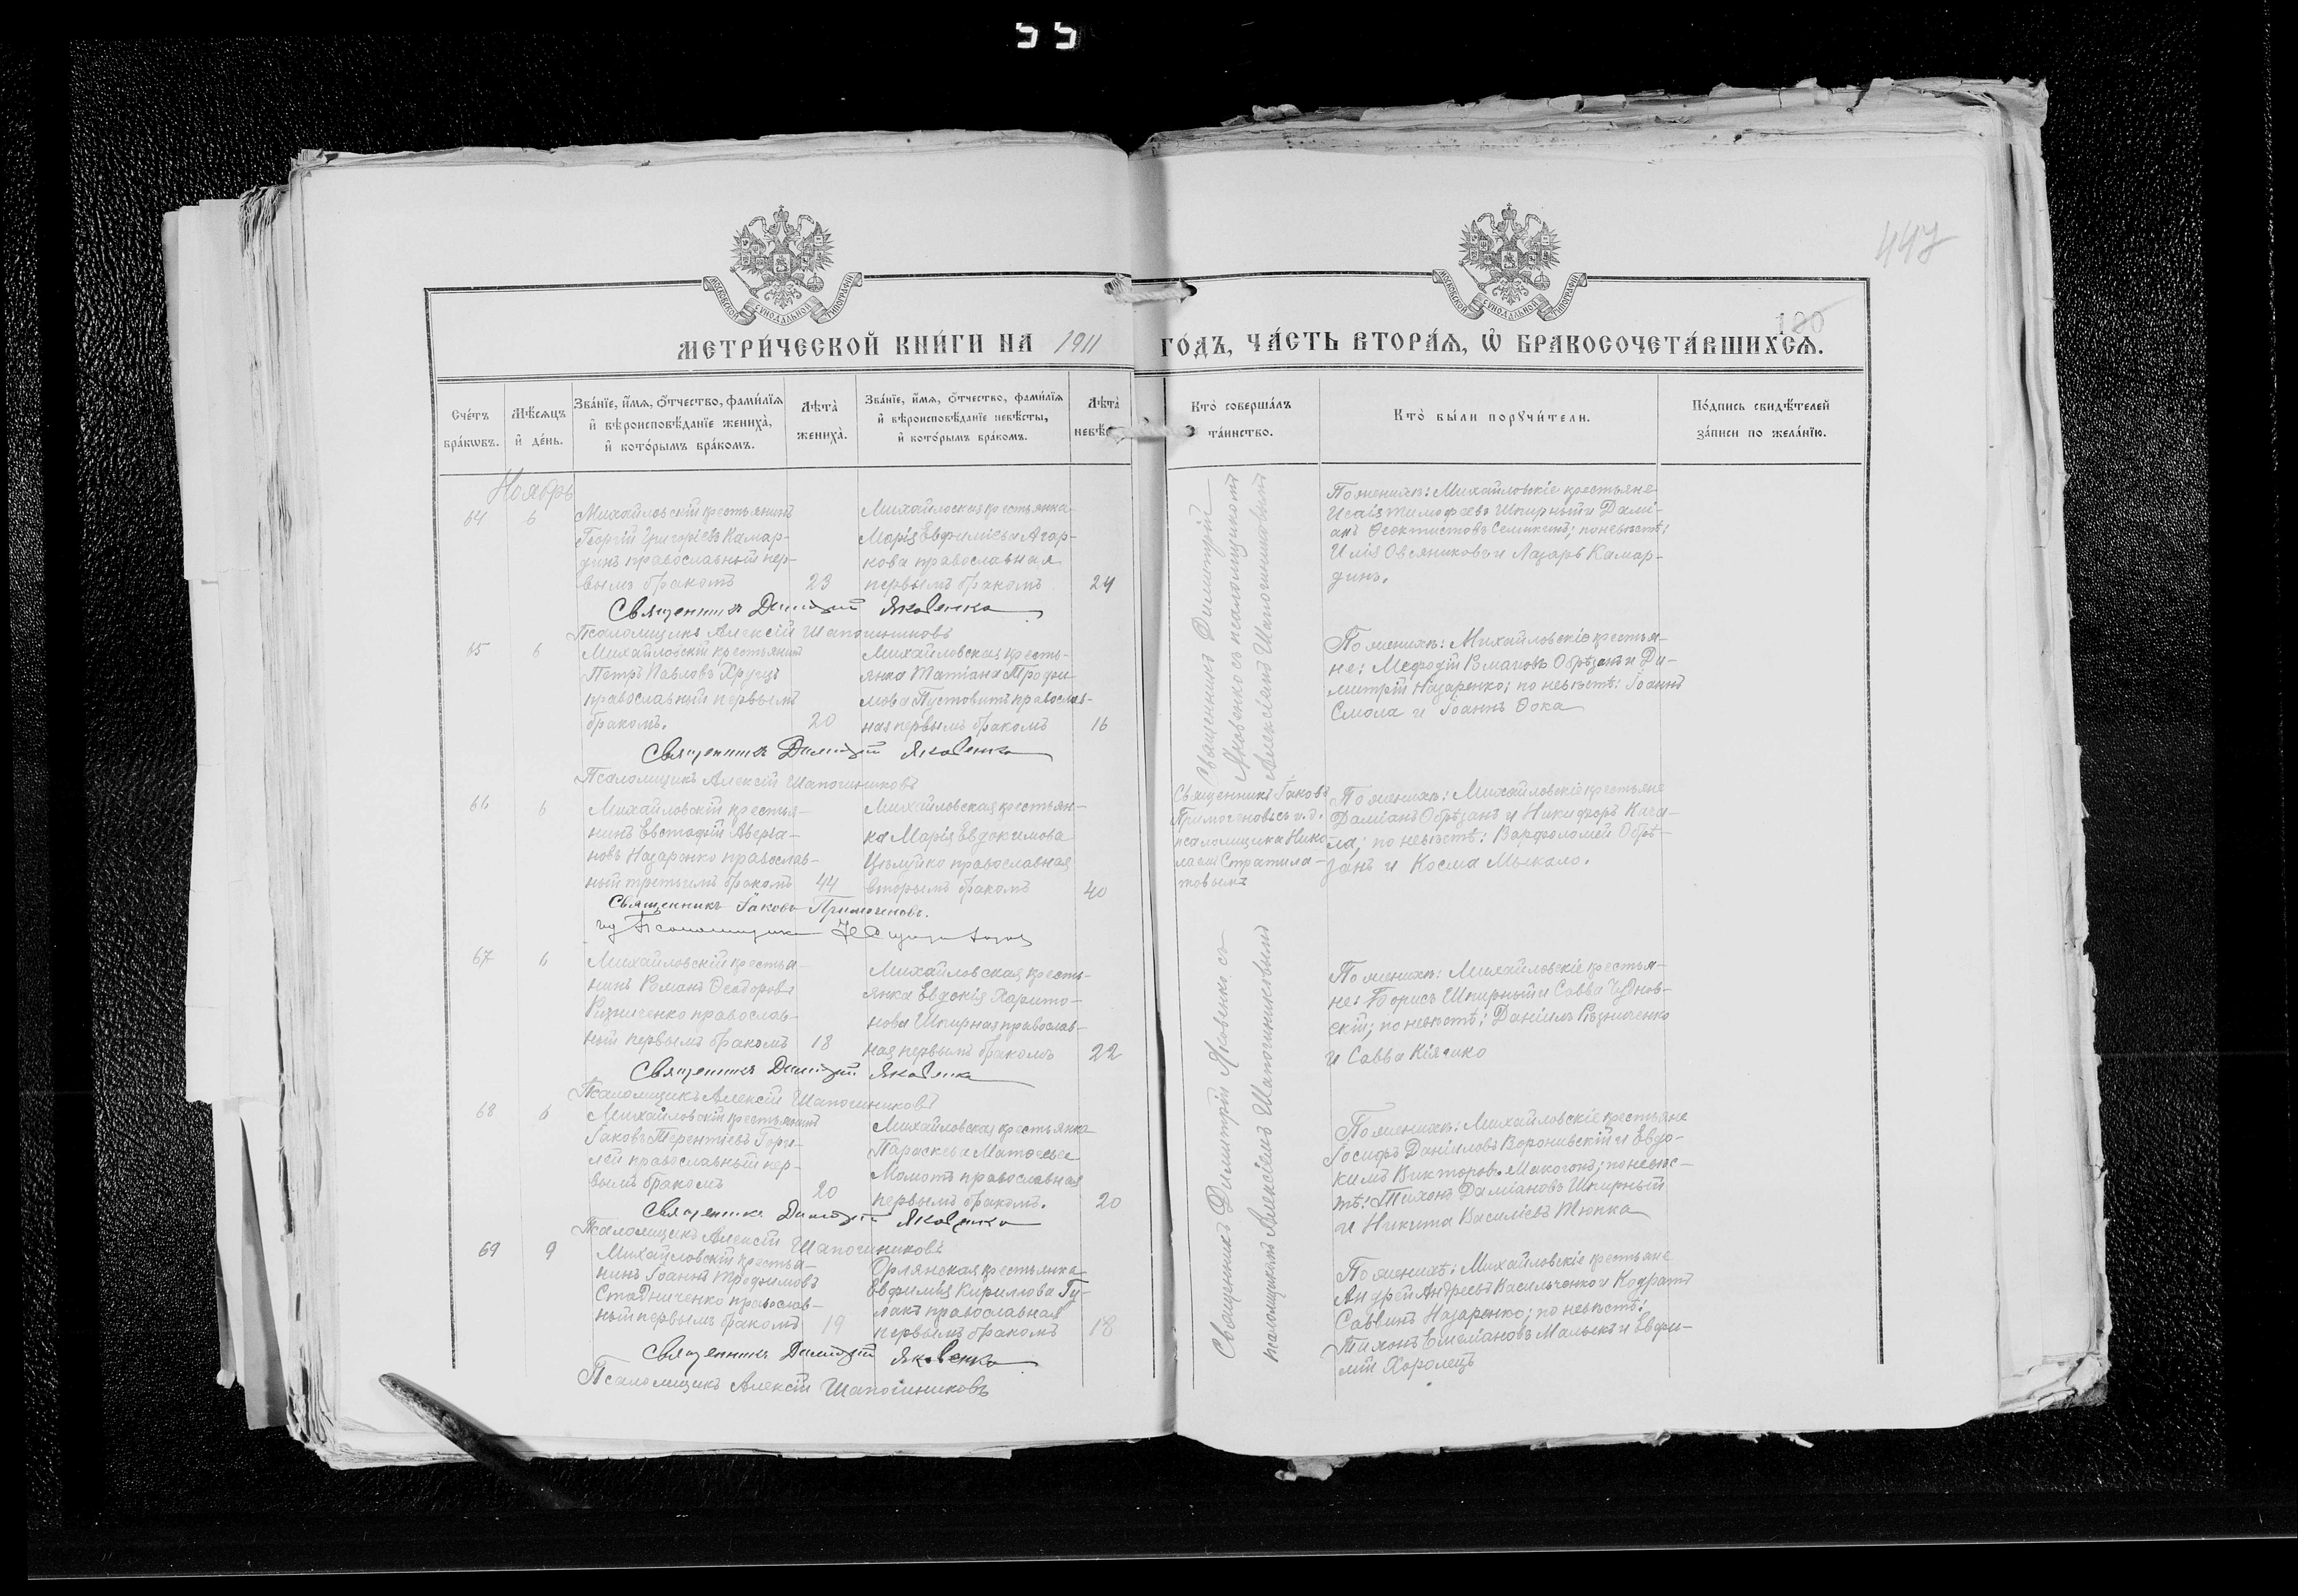 55
447
180
МОСКОВСКОЙ СѴНОДАЛЬНОЙ ТИПОГРАФІИ
МОСКОВСКОЙ СѴНОДАЛЬНОЙ ТИПОГРАФІИ
МЕТРИ́ЧЕСКОЙ КНИ́ГИ НА 1911 ГО́ДЪ, ЧА́СТЬ ВТОРА́Ѧ, Ѡ҆ БРАКОСОЧЕТА́ВШИХСѦ.
Сче́тъ
бра́кѡвъ.
Мѣ́сѧцъ
и҆ де́нь.
Зва́нїе, и҆́мѧ, ѻ҆́тчество, фами́лїѧ
и҆ вѣроисповѣ́данїе жениха̀,
и҆ кото́рымъ бра́комъ.
Лѣта̀
жениха̀.
Зва́нїе, и҆́мѧ, ѻ҆́тчество, фами́лїѧ
и҆ вѣроисповѣ́данїе невѣ́сты,
и҆ кото́рымъ бра́комъ.
Лѣта̀
невѣ
Кто̀ соверша́лъ
та́инство.
Кто̀ бы́ли порꙋчи́тели.
По́дпись свидѣ́телей
за́писи по жела́нїю.
Ноябрь
64
6
Михайловскій крестьянинъ
Георгій Григоріевъ Камар-
динъ православный пер-
вымъ бракомъ
23
Михайловская крестьянка
Марія Евфиміева Агар-
кова православная
первымъ бракомъ
24
Священникъ Димитрій
Яковенко съ псаломщикомъ
Алексіемъ Шапошниковымъ
По женихѣ: Михайловскіе крестьяне
Исаія Тимофѣевъ Шпирный и Дамі-
анъ Ѳеоктистовъ Семикинъ; по невѣстѣ:
Илія Овсянниковъ и Лазарь Камар-
динъ.
Священникъ Димитрій Яковенко
Псаломщикъ Алексій Шапошниковъ
65
6
Михайловскій крестьянинъ
Петръ Павловъ Хрущъ
православный первымъ
бракомъ.
20
Михайловская кресть-
янка Татіана Трофи-
мова Пустовитъ православ-
ная первымъ бракомъ
16
По женихѣ: Михайловскіе крестья-
не: Мефодій Романовъ Обрѣзанъ и Ди-
митрій Назаренко; по невѣстѣ: Іоаннъ
Смола и Іоаннъ Фока
Священникъ Димитрій Яковенко
Псаломщикъ Алексій Шапошниковъ
66
6
Михайловскій крестья-
нинъ Евстафій Аверіа-
новъ Назаренко православ-
ный третьимъ бракомъ
44
Михайловская крестьян-
ка Марія Евдокимова
Цѣлуйко православная
вторымъ бракомъ
40
Священникъ Іаковъ
Примогеновъ съ и.д.
псаломщика Нико-
лаемъ Стратила-
товымъ
По женихѣ: Михайловскіе крестьяне
Даміанъ Обрѣзанъ и Никифоръ Кача-
ла; по невѣстѣ: Варфоломей Обрѣ-
занъ и Косма Мыкало.
Священникъ Іаковъ Примогеновъ.
ид Псаломщика
67
6
Михайловскій крестья-
нинъ Романъ Ѳеодоровъ
Рѣзниченко православ-
ный первымъ бракомъ
18
Михайловская кресть-
янка Евдокія Харито-
нова Шпирная православ-
ная первымъ бракомъ
22
Священникъ Димитрій Яковенко съ
псаломщикомъ Алексіемъ Шапошниковымъ
По женихѣ: Михайловскіе крестья-
не: Борисъ Шпирный и Савва Чуднов-
скій; по невѣстѣ: Даніилъ Рѣзниченко
и Савва Кіяшко
Священникъ Димитрій Яковенко
Псаломщикъ Алексій Шапошниковъ
68
6
Михайловскій крестьянинъ
Іаковъ Терентіевъ Горе-
лей православный пер-
вымъ бракомъ
20
Михайловская крестьянка
Параскева Матѳеева
Момотъ православная
первымъ бракомъ.
20
По женихѣ: Михайловскіе крестьяне
Іосифъ Даніиловъ Воронивскій и Евдо-
кимъ Викторов. Макогонъ; по невѣс-
тѣ: Тихонъ Даміановъ Шпирный
и Никита Василіевъ Тюпка
Священникъ Димитрій Яковенко
Псаломщикъ Алексій Шапошниковъ
69
9
Михайловскій крестья-
нинъ Іоаннъ Трофимовъ
Стадниченко православ-
ный первымъ бракомъ
19
Орлянская крестьянка
Евфимія Кириллова Гу-
лакъ православная
первымъ бракомъ
18
По женихѣ: Михайловскіе крестьяне
Андрей Андреевъ Васильченко и Кодратъ
Саввинъ Назаренко; по невѣстѣ:
Тихонъ Емеліановъ Малыкъ и Евфи-
мій Хоролецъ
Священникъ Димитрій Яковенко
Псаломщикъ Алексій Шапошниковъ